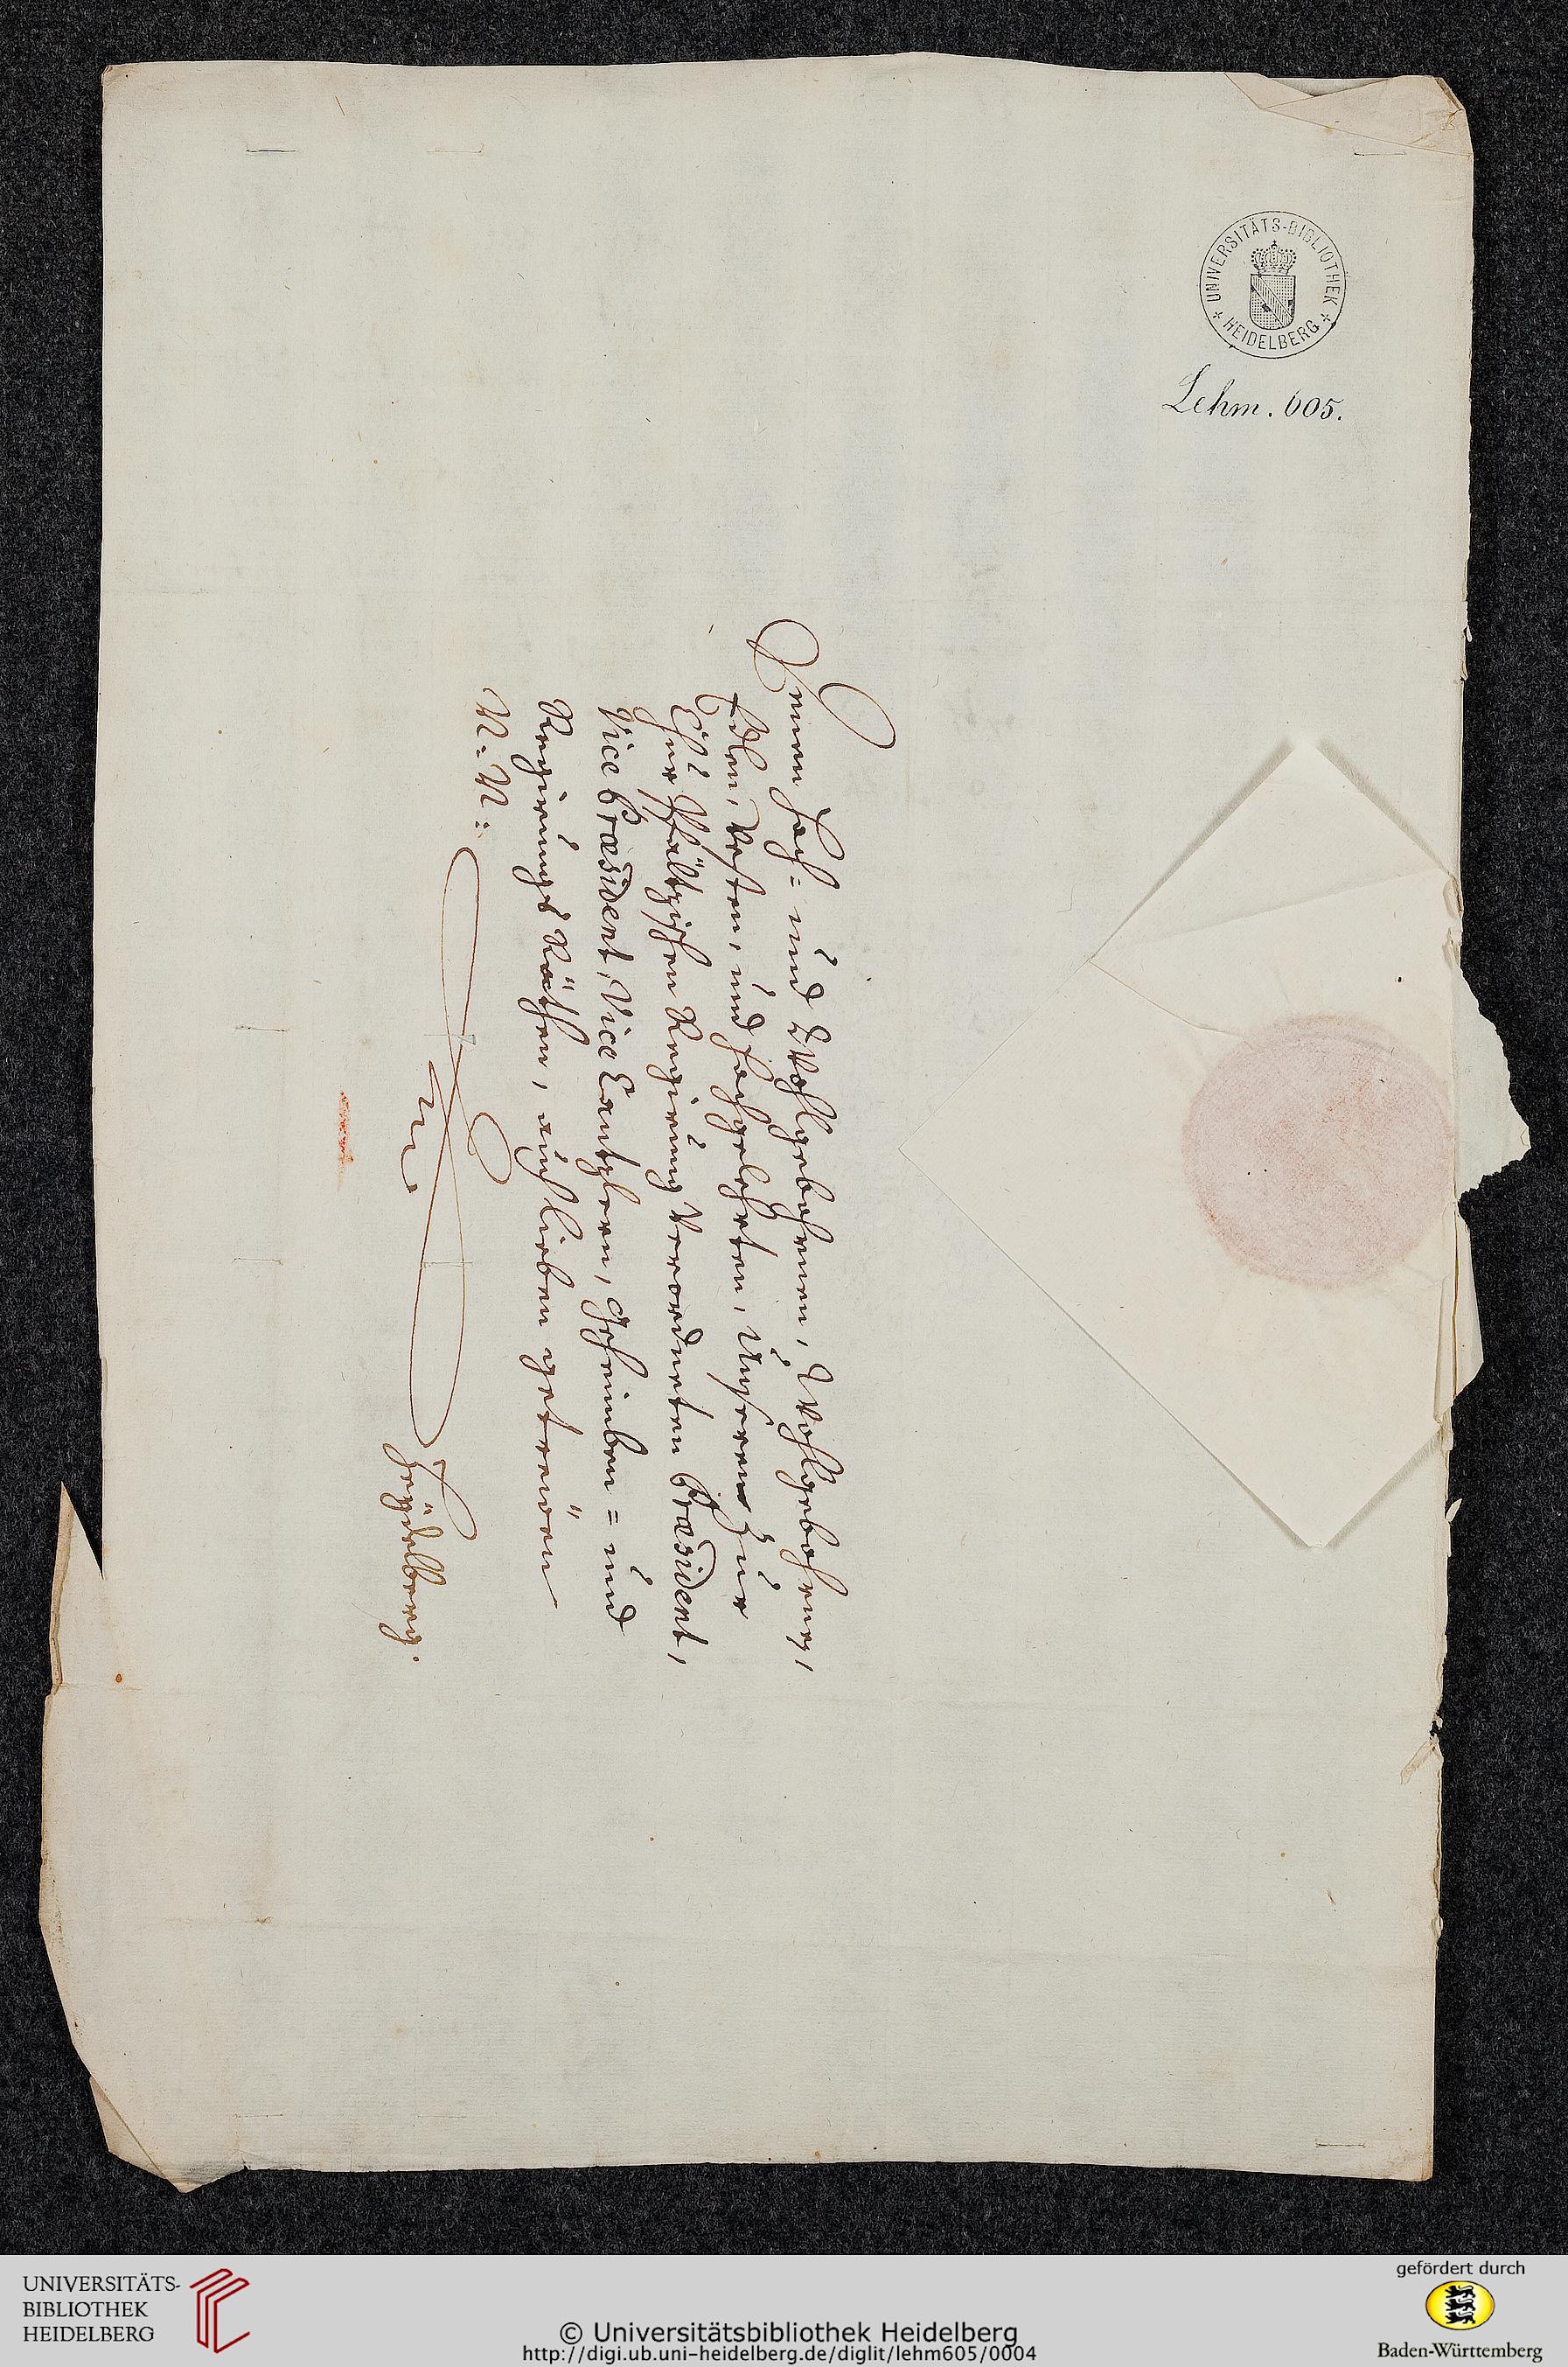 UNIVERSITÄTS-BIBLIOTHEK
HEIDELBERG
Lehm. 605.
Denen Hoch= und Wohlgebohrnen, Wohlgebohrnen,
Edlen, Vesten, und Hochgelehrten, Unseren zur
Chur Pfältzischen Regierung Verordneten Præsident,
Vice Præsident, Vice Cantzlern, Geheimben= und
Regierungs Räthen, auch lieben getreuen
N: N:
Zu
Heÿdelberg.
UNIVERSITÄTS-
BIBLIOTHEK
HEIDELBERG
© Universitätsbibliothek Heidelberg
http://digi.ub.uni-heidelberg.de/diglit/lehm605/0004
gefördert durch
Baden-Württemberg